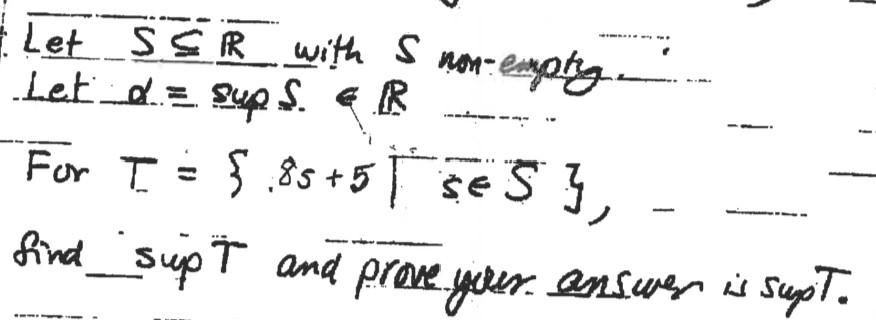 Let S ⊆ ℝ with S non-empty.
Let α = sup S. ∈ ℝ
For T = { .8s + 5 | s ∈ S },
find sup T and prove your answer is sup T.